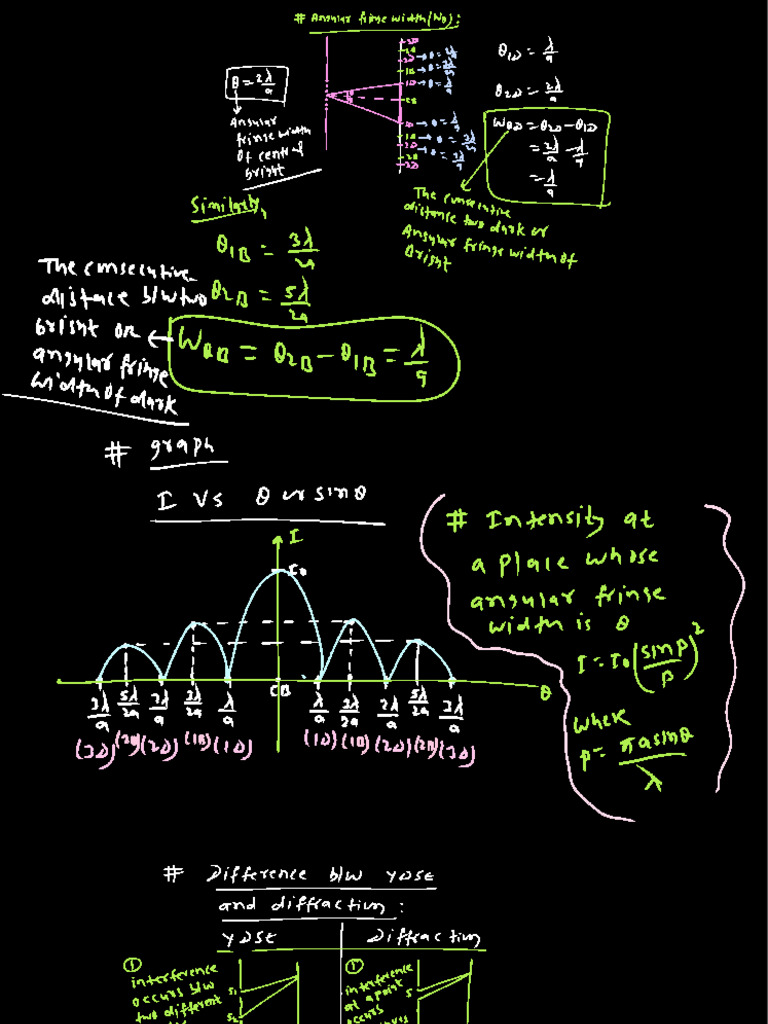 # Angular fringe width (Wθ):
θ = 2λ/a
Angular
fringe width
of central
bright
θ1D = λ/a
θ2D = 2λ/a
WθD = θ2D - θ1D
= 2λ/a - λ/a
= λ/a
The consecutive
distance two dark or
Angular fringe width of
Bright
Similarly,
θ1B = 3λ/2a
θ2B = 5λ/2a
WθB = θ2B - θ1B = λ/a
The consecutive
distance b/w two
bright or
angular fringe
width of dark
# graph
I Vs θ or sinθ
I
I0
CB
θ
3λ/a 5λ/2a 2λ/a 3λ/2a λ/a λ/a 3λ/2a 2λ/a 5λ/2a 3λ/a
(3D) (2B) (2D) (1B) (1D) (1D) (1B) (2D) (2B) (3D)
# Intensity at
a place whose
angular fringe
width is θ
I = I0 (sinβ/β)²
where
β = πasinθ/λ
# Difference b/w YDSE
and diffraction:
YDSE Diffraction
①
interference
occurs b/w
two different
S1
S2
①
interference
at a point
occurs
S